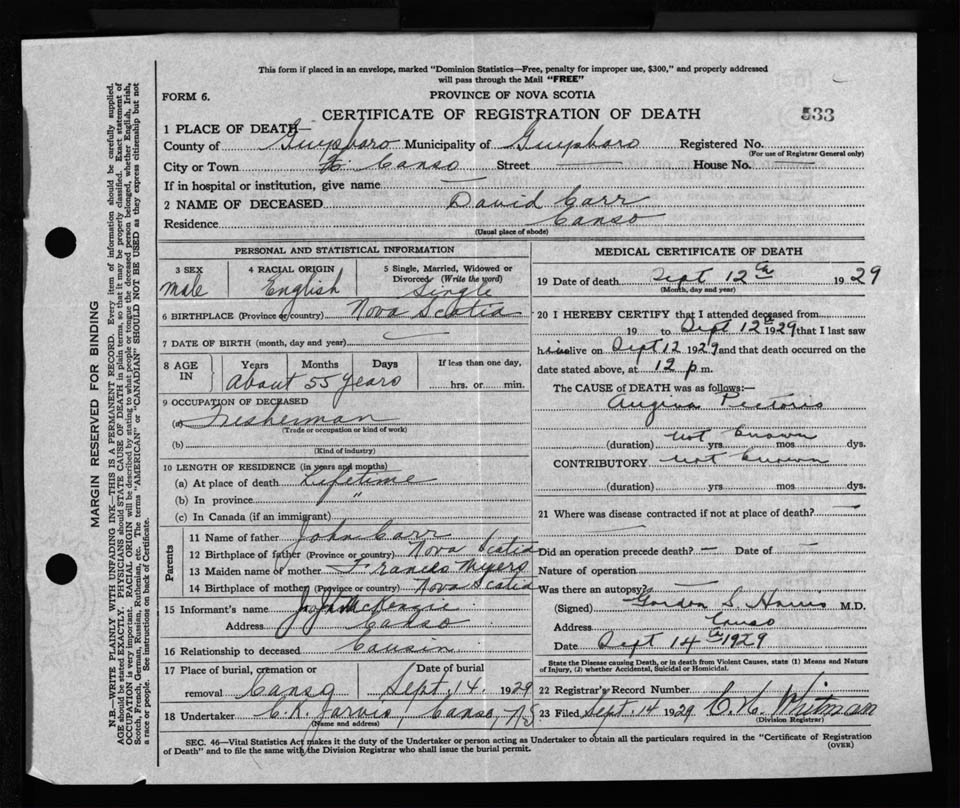 This form if placed in an envelope, marked "Dominion Statistics—Free, penalty for improper use, $300," and properly addressed
will pass through the Mail "FREE"
FORM 6.
PROVINCE OF NOVA SCOTIA
CERTIFICATE OF REGISTRATION OF DEATH
533
1 PLACE OF DEATH—
County of Guysboro Municipality of Guysboro Registered No.
(For use of Registrar General only)
City or Town Canso Street House No.
If in hospital or institution, give name
2 NAME OF DECEASED David Carr
Residence Canso
(Usual place of abode)
PERSONAL AND STATISTICAL INFORMATION
3 SEX 4 RACIAL ORIGIN 5 Single, Married, Widowed or Divorced (Write the word)
male English Single
6 BIRTHPLACE (Province or country) Nova Scotia
7 DATE OF BIRTH (month, day and year)
8 AGE IN Years Months Days If less than one day,
About 55 years hrs. or min.
9 OCCUPATION OF DECEASED
(a) Fisherman
(Trade or occupation or kind of work)
(b)
(Kind of industry)
10 LENGTH OF RESIDENCE (in years and months)
(a) At place of death Lifetime
(b) In province "
(c) In Canada (if an immigrant)
Parents
11 Name of father John Carr
12 Birthplace of father (Province or country) Nova Scotia
13 Maiden name of mother Frances Myers
14 Birthplace of mother (Province or country) Nova Scotia
15 Informant's name McKenzie
Address Canso
16 Relationship to deceased Cousin
17 Place of burial, cremation or Date of burial
removal Canso Sept. 14. 1929
18 Undertaker C. K. Jarvis, Canso, N.S
(Name and address)
MEDICAL CERTIFICATE OF DEATH
19 Date of death Sept 12th 1929
(Month, day and year)
20 I HEREBY CERTIFY that I attended deceased from
19 to Sept 12th 1929 that I last saw
him alive on Sept 12 1929 and that death occurred on the
date stated above, at 12 p m.
The CAUSE of DEATH was as follows:—
Angina Pectoris
not known
(duration) yrs. mos. dys.
CONTRIBUTORY not known
(duration) yrs. mos. dys.
21 Where was disease contracted if not at place of death? —
Did an operation precede death? — Date of —
Nature of operation
Was there an autopsy? —
(Signed) Gordon S. Harris M.D.
Address Canso
Date Sept 14th 1929
State the Disease causing Death, or in death from Violent Causes, state (1) Means and Nature
of Injury, (2) whether Accidental, Suicidal or Homicidal.
22 Registrar's Record Number
23 Filed Sept. 14 1929 Whitman
(Division Registrar)
SEC. 46—Vital Statistics Act makes it the duty of the Undertaker or person acting as Undertaker to obtain all the particulars required in the "Certificate of Registration
of Death" and to file the same with the Division Registrar who shall issue the burial permit.
(OVER)
MARGIN RESERVED FOR BINDING
N.B.—WRITE PLAINLY WITH UNFADING INK—THIS IS A PERMANENT RECORD. Every item of information should be carefully supplied.
AGE should be stated EXACTLY. PHYSICIANS should STATE CAUSE OF DEATH in plain terms, so that it may be properly classified. Exact statement of
OCCUPATION is very important. RACIAL ORIGIN will be described by stating to what people or tongue the deceased person belonged, whether English, Irish,
Scotch, French, German, Russian, Ruthenian, etc. The terms "AMERICAN" or "CANADIAN" SHOULD NOT BE USED as they express citizenship but not
a race or people. See instructions on back of Certificate.